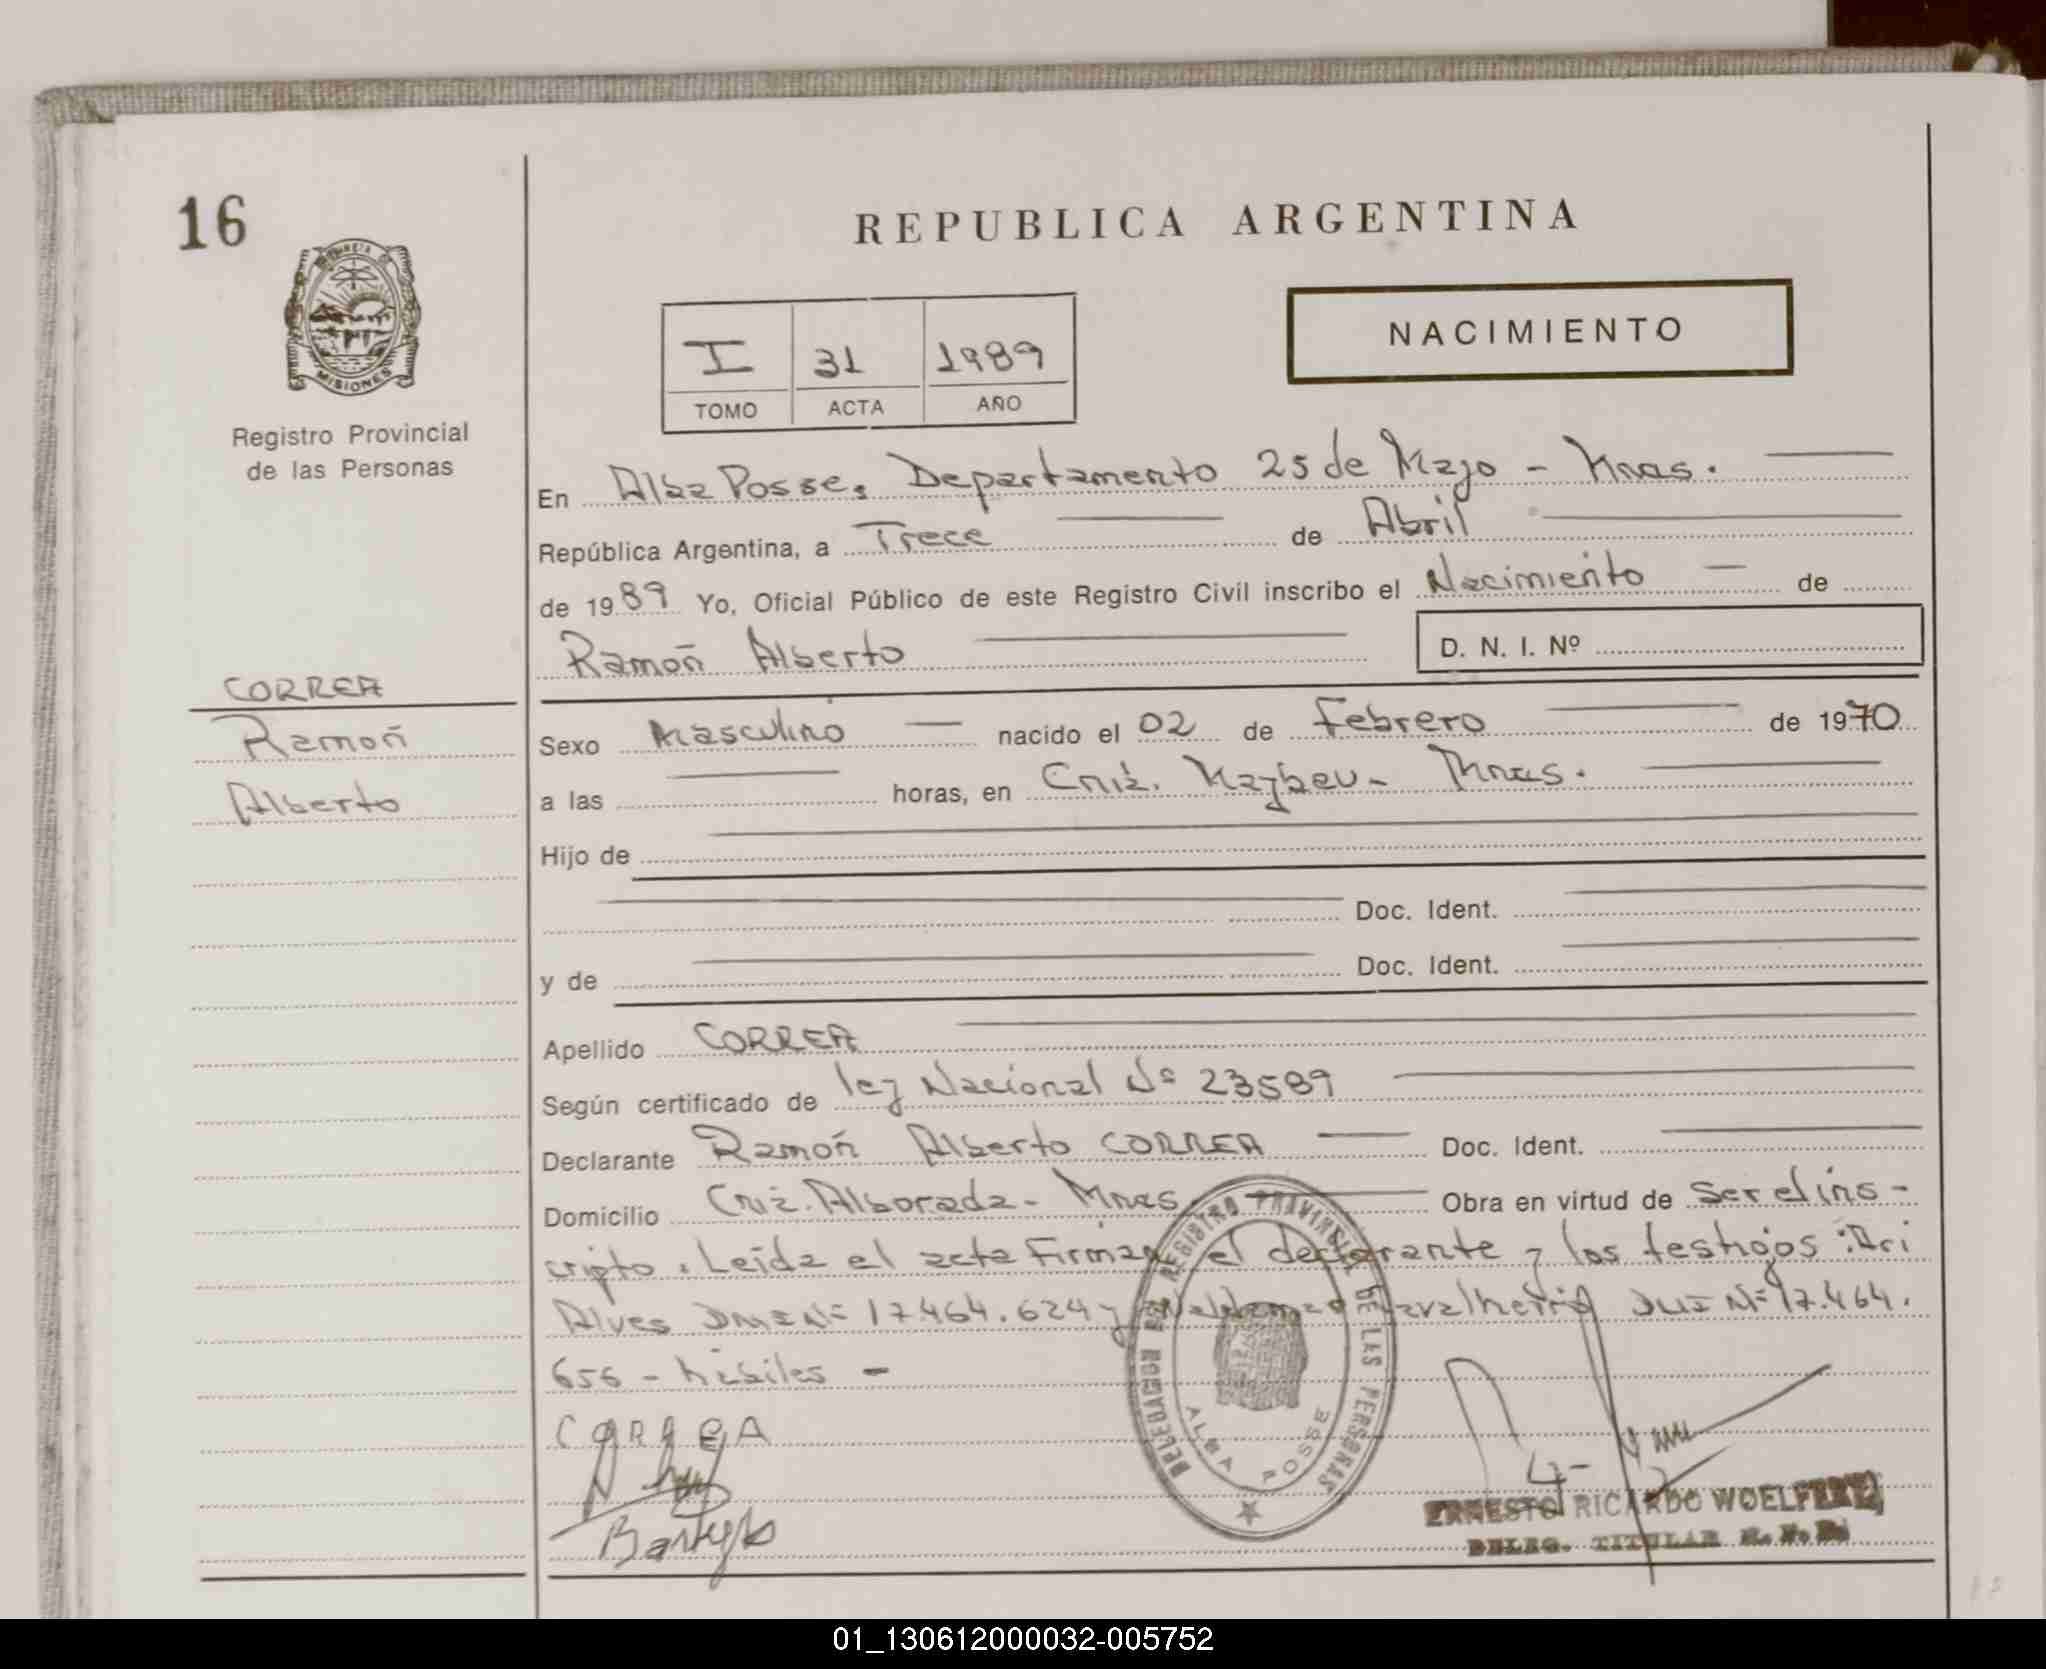 16
REPUBLICA ARGENTINA
MISIONES
Registro Provincial
de las Personas
I 31 1989
TOMO ACTA AÑO
NACIMIENTO
En Alba Posse, Departamento 25 de Mayo - Mnes.
República Argentina, a Trece de Abril
de 1989 Yo, Oficial Público de este Registro Civil inscribo el Nacimiento de
Ramón Alberto D. N. I. Nº
CORREA
Ramón
Alberto
Sexo Masculino nacido el 02 de Febrero de 1970
a las horas, en Cnia. Mnes.
Hijo de
Doc. Ident.
y de Doc. Ident.
Apellido CORREA
Según certificado de ley Nacional Nº 23589
Declarante Ramón Alberto CORREA Doc. Ident.
Domicilio Cnia. Alborada - Mnes Obra en virtud de Ser el ins-
cripto. Leída el acta Firman el declarante y los testigos: Ari
Alves DNI Nº 17.464.624 y DNI Nº 17.464.
656 - hábiles -
CORREA
DELEGADO DEL REGISTRO PROVINCIAL DE LAS PERSONAS
ALBA POSSE
ERNESTO RICARDO
DELEG. TITULAR R.P.P.
01_130612000032-005752